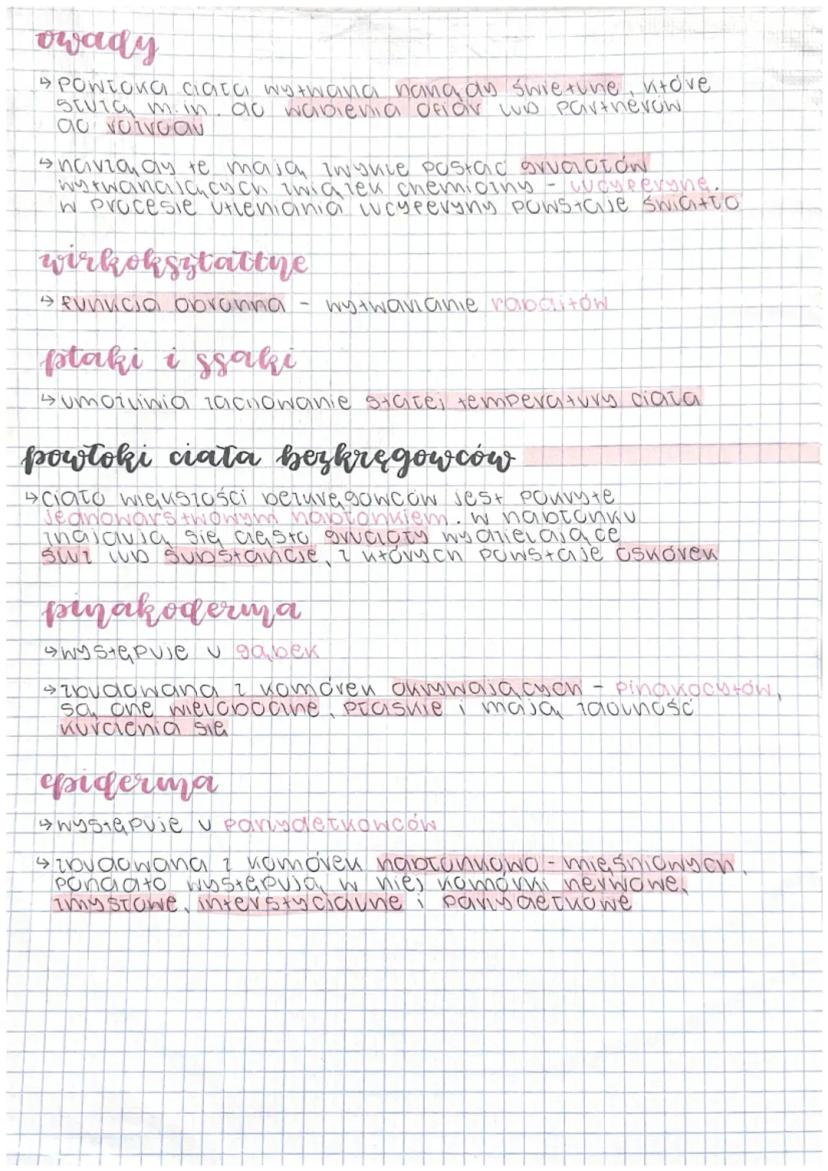 owady
↳ powłoka ciała wytwarza narządy świetlne, które
służą m.in. do wabienia ofiar lub partnerów
do rozrodu
↳ narządy te mają zwykle postać gruczołów
wytwarzających związek chemiczny - lucyferynę.
w procesie utleniania lucyferyny powstaje światło
wirkokształtne
↳ funkcja obronna - wytwarzanie rabditów
ptaki i ssaki
↳ umożliwia zachowanie stałej temperatury ciała
powłoki ciała bezkręgowców
↳ ciało większości bezkręgowców jest pokryte
jednowarstwowym nabłonkiem. w nabłonku
znajdują się często gruczoły wydzielające
śluz lub substancje, z których powstaje oskórek
pinakoderma
↳ występuje u gąbek
↳ zbudowana z komórek okrywających - pinakocytów,
są one wieloboczne, płaskie i mają zdolność
kurczenia się
epiderma
↳ występuje u parzydełkowców
↳ zbudowana z komórek nabłonkowo-mięśniowych,
ponadto występują w niej komórki nerwowe,
zmysłowe, interstycjalne i parzydełkowe